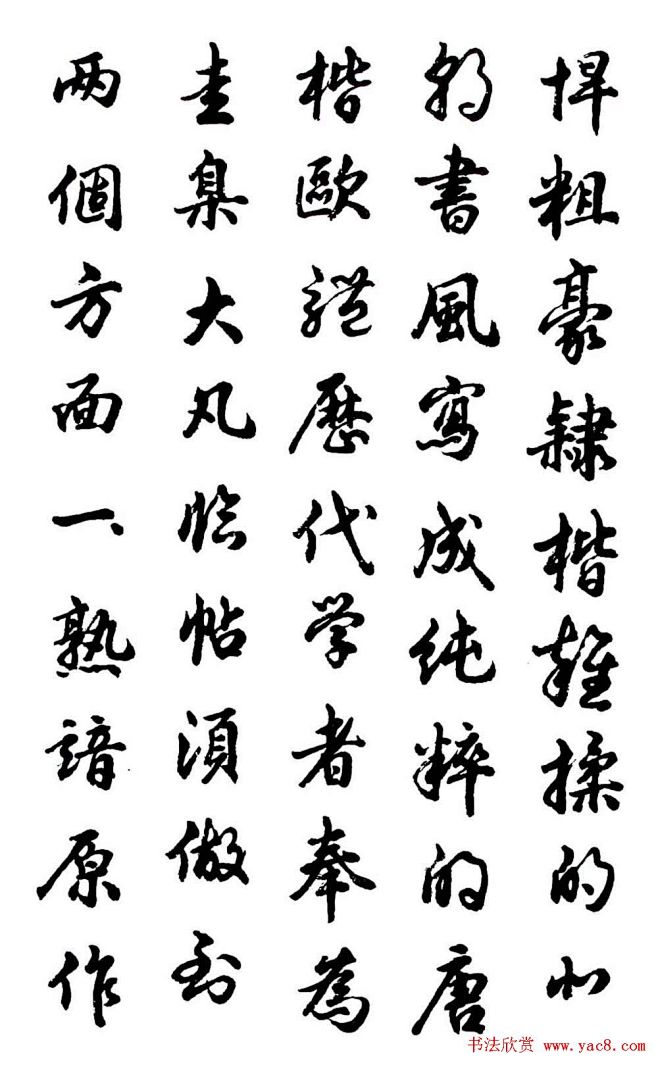 悍粗豪隸楷雜揉的北
朝書風寫成純粹的唐
楷歐體歷代学者奉為
圭臬大凡临帖須做到
两個方面一、熟諳原作
书法欣赏 www.yac8.com